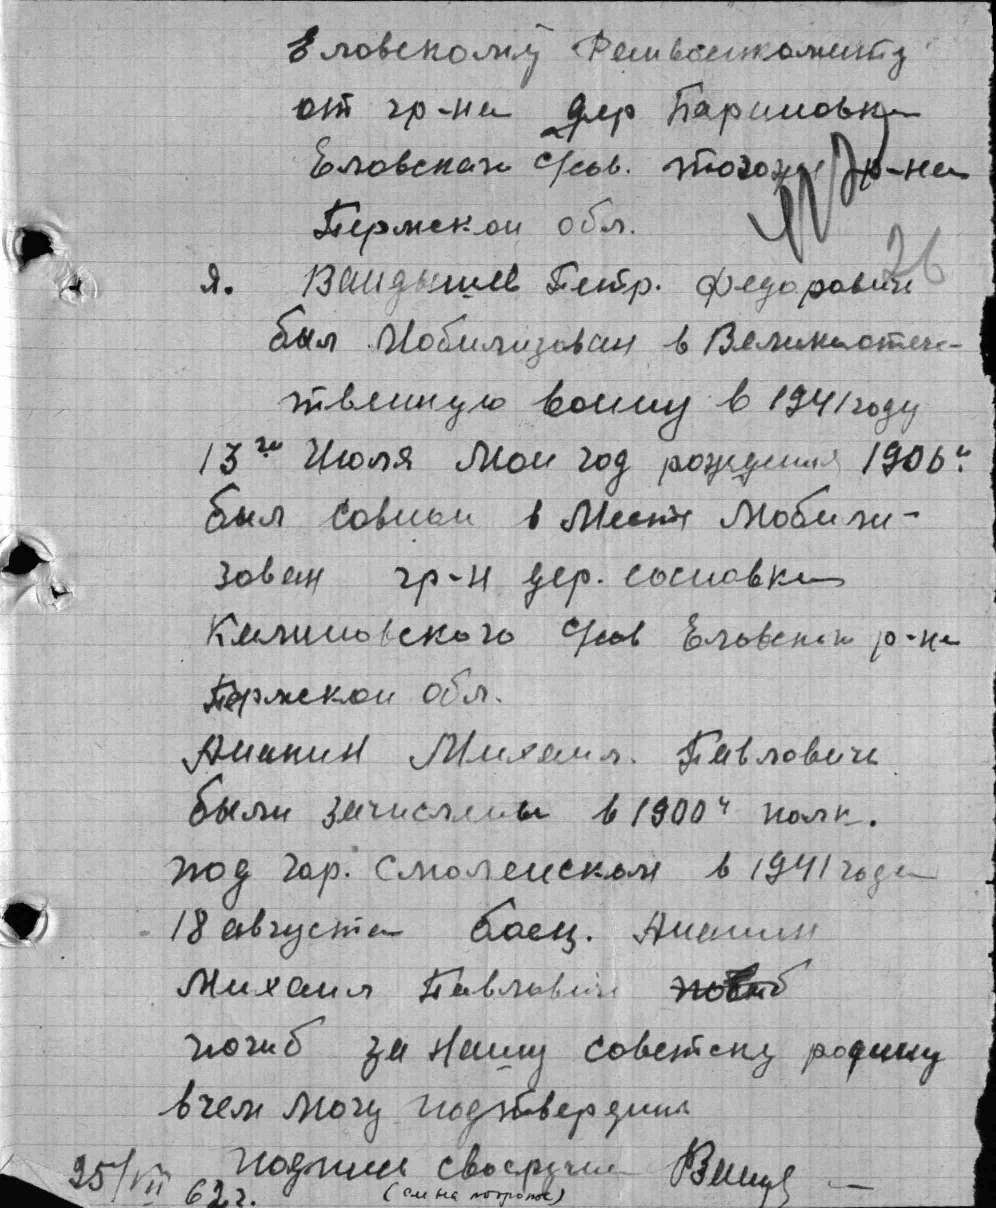 Еловскому Раивоинкоменту
от гр-на дер Паримовка
Еловскаго с/сов. тогоже р-на
Пермскои обл.
26
я. Вандышев Петр. Федорович
был Мобилизован в Великоотече-
твенную воину в 1941 году
13го Июля Мои год рождения 1906г.
был совмои в Месте Мобили-
зован гр-н дер. сосновка
Калиновского с/сов Еловскаго р-на
Пермскои обл.
Ананин Михаил. Павлович
были зачислены в 1900й полк.
под гор. Смоленском в 1941 года
18 августа боец. Ананин
Михаил Павлович
погиб за Нашу советску родину
вчем Могу подтвердить
подпись своеручна Ванд
25/VII 62 г.